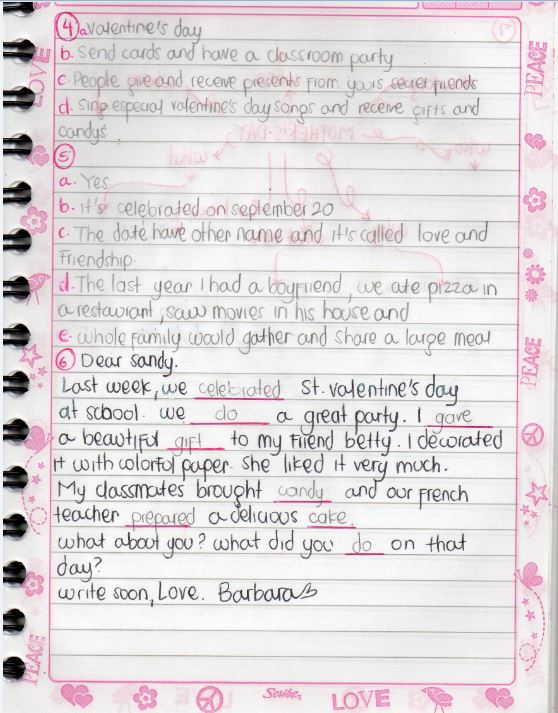 LOVE
PEACE
4 a. Valentine's day
b. Send cards and have a classroom party
c. People give and receive presents from yours secret friends
d. Sing especial valentine's day songs and receive gifts and
candys.
5
a. Yes
b. it's celebrated on september 20
c. The date have other name and it's called love and
Friendship.
d. The last year I had a boyfriend, we ate pizza in
a restaurant, saw movies in his house and
e. whole family would gather and share a large meal
PEACE
6 Dear sandy.
Last week, we celebrated St. valentine's day
at school. we do a great party. I gave
a beautiful gift to my friend betty. I decorated
it with colorful paper. she liked it very much.
My classmates brought candy and our french
teacher prepared a delicious cake.
what about you? what did you do on that
day?
write soon, Love. Barbara
PEACE
Scribe
LOVE